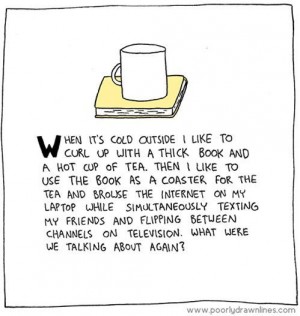 WHEN IT'S COLD OUTSIDE I LIKE TO
CURL UP WITH A THICK BOOK AND
A HOT CUP OF TEA. THEN I LIKE TO
USE THE BOOK AS A COASTER FOR THE
TEA AND BROWSE THE INTERNET ON MY
LAPTOP WHILE SIMULTANEOUSLY TEXTING
MY FRIENDS AND FLIPPING BETWEEN
CHANNELS ON TELEVISION. WHAT WERE
WE TALKING ABOUT AGAIN?
www.poorlydrawnlines.com